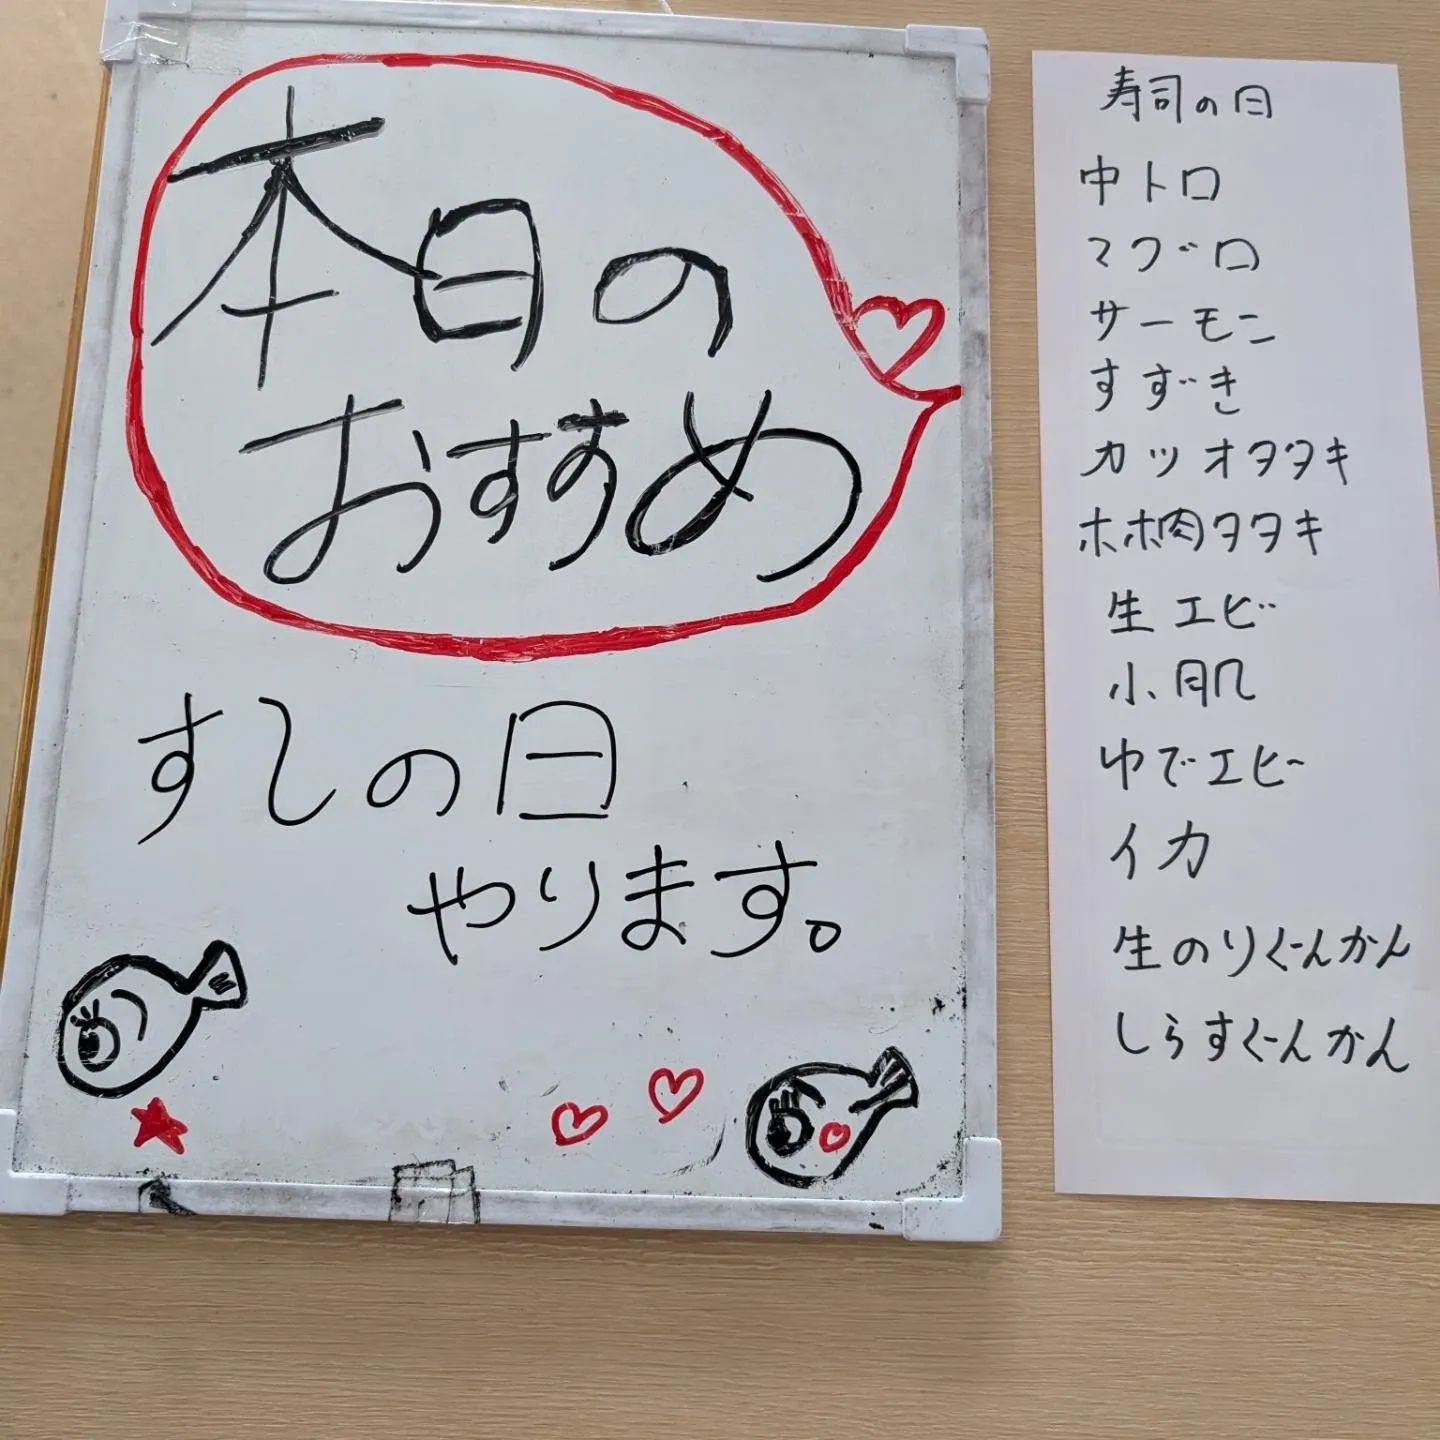 本日の
おすすめ
すしの日
やります。
寿司の日
中トロ
マグロ
サーモン
すずき
カツオタタキ
ホホ肉タタキ
生エビ
小肌
ゆでエビ
イカ
生のりぐんかん
しらすぐんかん